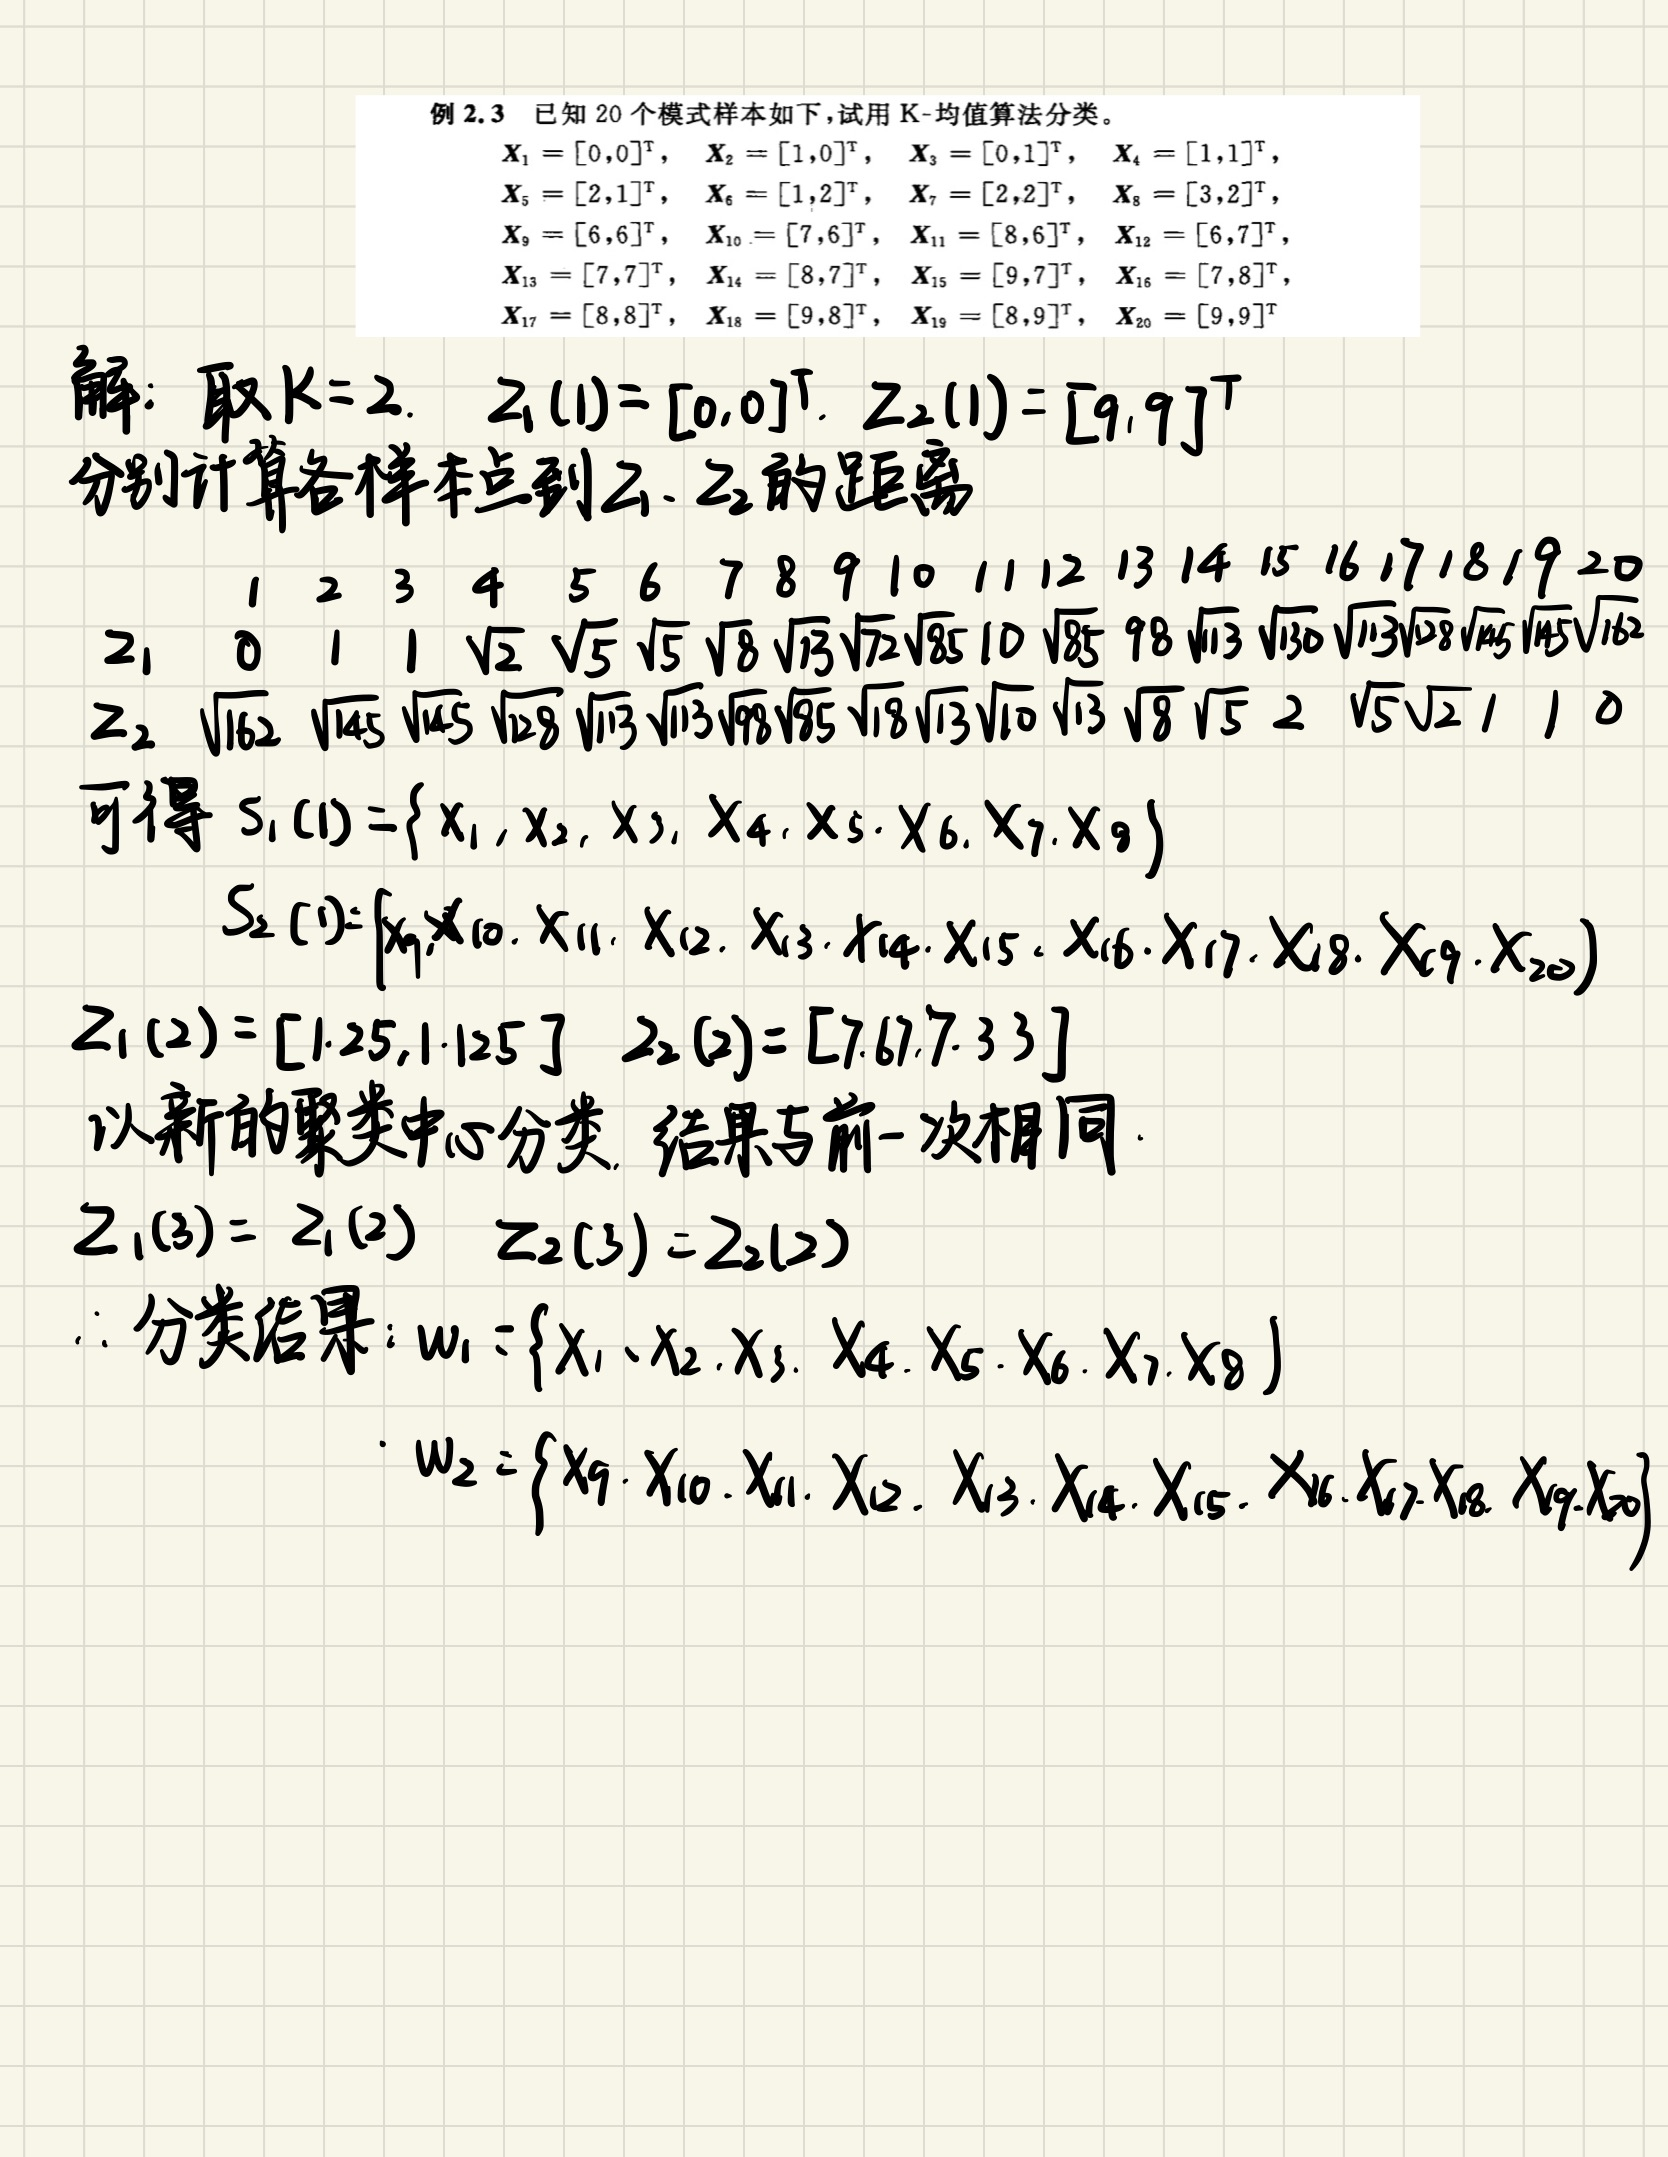 例 2.3 已知 20 个模式样本如下,试用 K-均值算法分类。
X₁ = [0,0]ᵀ, X₂ = [1,0]ᵀ, X₃ = [0,1]ᵀ, X₄ = [1,1]ᵀ,
X₅ = [2,1]ᵀ, X₆ = [1,2]ᵀ, X₇ = [2,2]ᵀ, X₈ = [3,2]ᵀ,
X₉ = [6,6]ᵀ, X₁₀ = [7,6]ᵀ, X₁₁ = [8,6]ᵀ, X₁₂ = [6,7]ᵀ,
X₁₃ = [7,7]ᵀ, X₁₄ = [8,7]ᵀ, X₁₅ = [9,7]ᵀ, X₁₆ = [7,8]ᵀ,
X₁₇ = [8,8]ᵀ, X₁₈ = [9,8]ᵀ, X₁₉ = [8,9]ᵀ, X₂₀ = [9,9]ᵀ
解: 取K=2. Z₁(1)=[0,0]ᵀ. Z₂(1)=[9,9]ᵀ
分别计算各样本点到Z₁、Z₂的距离
1 2 3 4 5 6 7 8 9 10 11 12 13 14 15 16 17 18 19 20
Z₁ 0 1 1 √2 √5 √5 √8 √13 √72 √85 10 √85 98 √113 √130 √113 √128 √145 √145 √162
Z₂ √162 √145 √145 √128 √113 √113 √98 √85 √18 √13 √10 √13 √8 √5 2 √5 √2 1 1 0
可得 S₁(1)={X₁,X₂,X₃,X₄,X₅.X₆.X₇.X₈}
S₂(1)={X₉,X₁₀.X₁₁.X₁₂.X₁₃.X₁₄.X₁₅.X₁₆.X₁₇.X₁₈.X₁₉.X₂₀}
Z₁(2)=[1.25,1.125] Z₂(2)=[7.67,7.33]
以新的聚类中心分类. 结果与前一次相同.
Z₁(3)=Z₁(2) Z₂(3)=Z₂(2)
∴分类结果: W₁={X₁、X₂.X₃.X₄.X₅.X₆.X₇.X₈}
W₂={X₉.X₁₀.X₁₁.X₁₂.X₁₃.X₁₄.X₁₅.X₁₆.X₁₇.X₁₈.X₁₉.X₂₀}